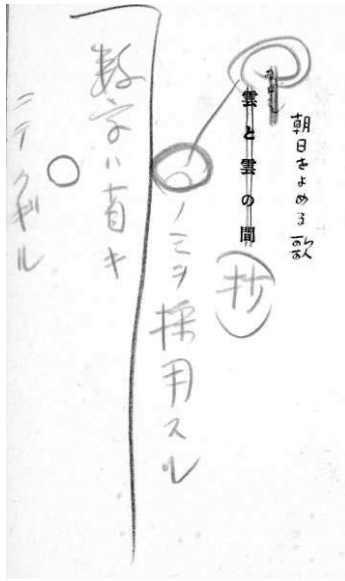 朝日をよめる歌
雲と雲の間
(抄)
○ノミヲ採用スル
数字ハ省キ
○
ニテクギル